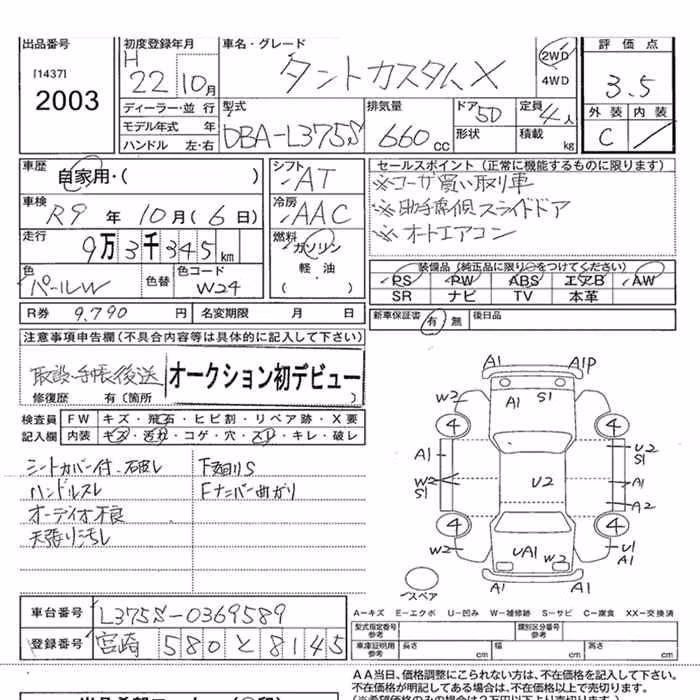 出品番号 初度登録年月 車名・グレード 評価点
[1437]
2003
H 22 10月 タントカスタムX 2WD 4WD 3.5
ディーラー・並行 型式 排気量 ドア 定員 外装 内装
モデル年式 年 DBA-L375S 660cc 5D 形状 4人 積載 kg C
ハンドル 左・右
車歴 自家用・( ) シフト AT セールスポイント (正常に機能するものに限ります)
※ユーザ買い取り車
車検 R9年10月(6日) 冷房 AAC ※助手席側スライドドア
走行 9万3千345km 燃料 ガソリン 軽・油 ( ) ※オートエアコン
色 パールW 色替 色コード W24 装備品(純正品に限り○をつけてください)
PS PW ABS エアB AW
SR ナビ TV 本革
R券 9,790円 名変期限 月 日 新車保証書 有 無 後日品
注意事項申告欄(不具合内容等は具体的に記入して下さい)
取説・手帳後送 オークション初デビュー
修復歴 有(箇所
検査員 FW キズ・飛石・ヒビ割・リペア跡・X要
記入欄 内装 キズ・汚れ・コゲ・穴・スレ・キレ・破レ
シートカバー付・破レ 下廻りS
ハンドルスレ Fナンバー曲がり
オーディオ不良
天張り汚レ
A1 A1P
W2 A1 S1
4 4
A1 U2 S1
W2 S1 U2 A1
A2
4 4
W2 UA1 W2 U1 A1
スペア A1 A1
A-キズ E-エクボ U-凹み W-補修跡 S-サビ C-腐食 XX-交換済
車台番号 L375S-0369589
型式指定番号 参考 類別区分番号 参考
登録番号 宮崎 580 と 8145
車庫証明用 参考 長さ cm 幅 cm 高さ cm
AA当日、価格調整にこられない方は、不在価格を記入して下さい。
不在価格が明記してある場合は、不在価格以上で売切ります。